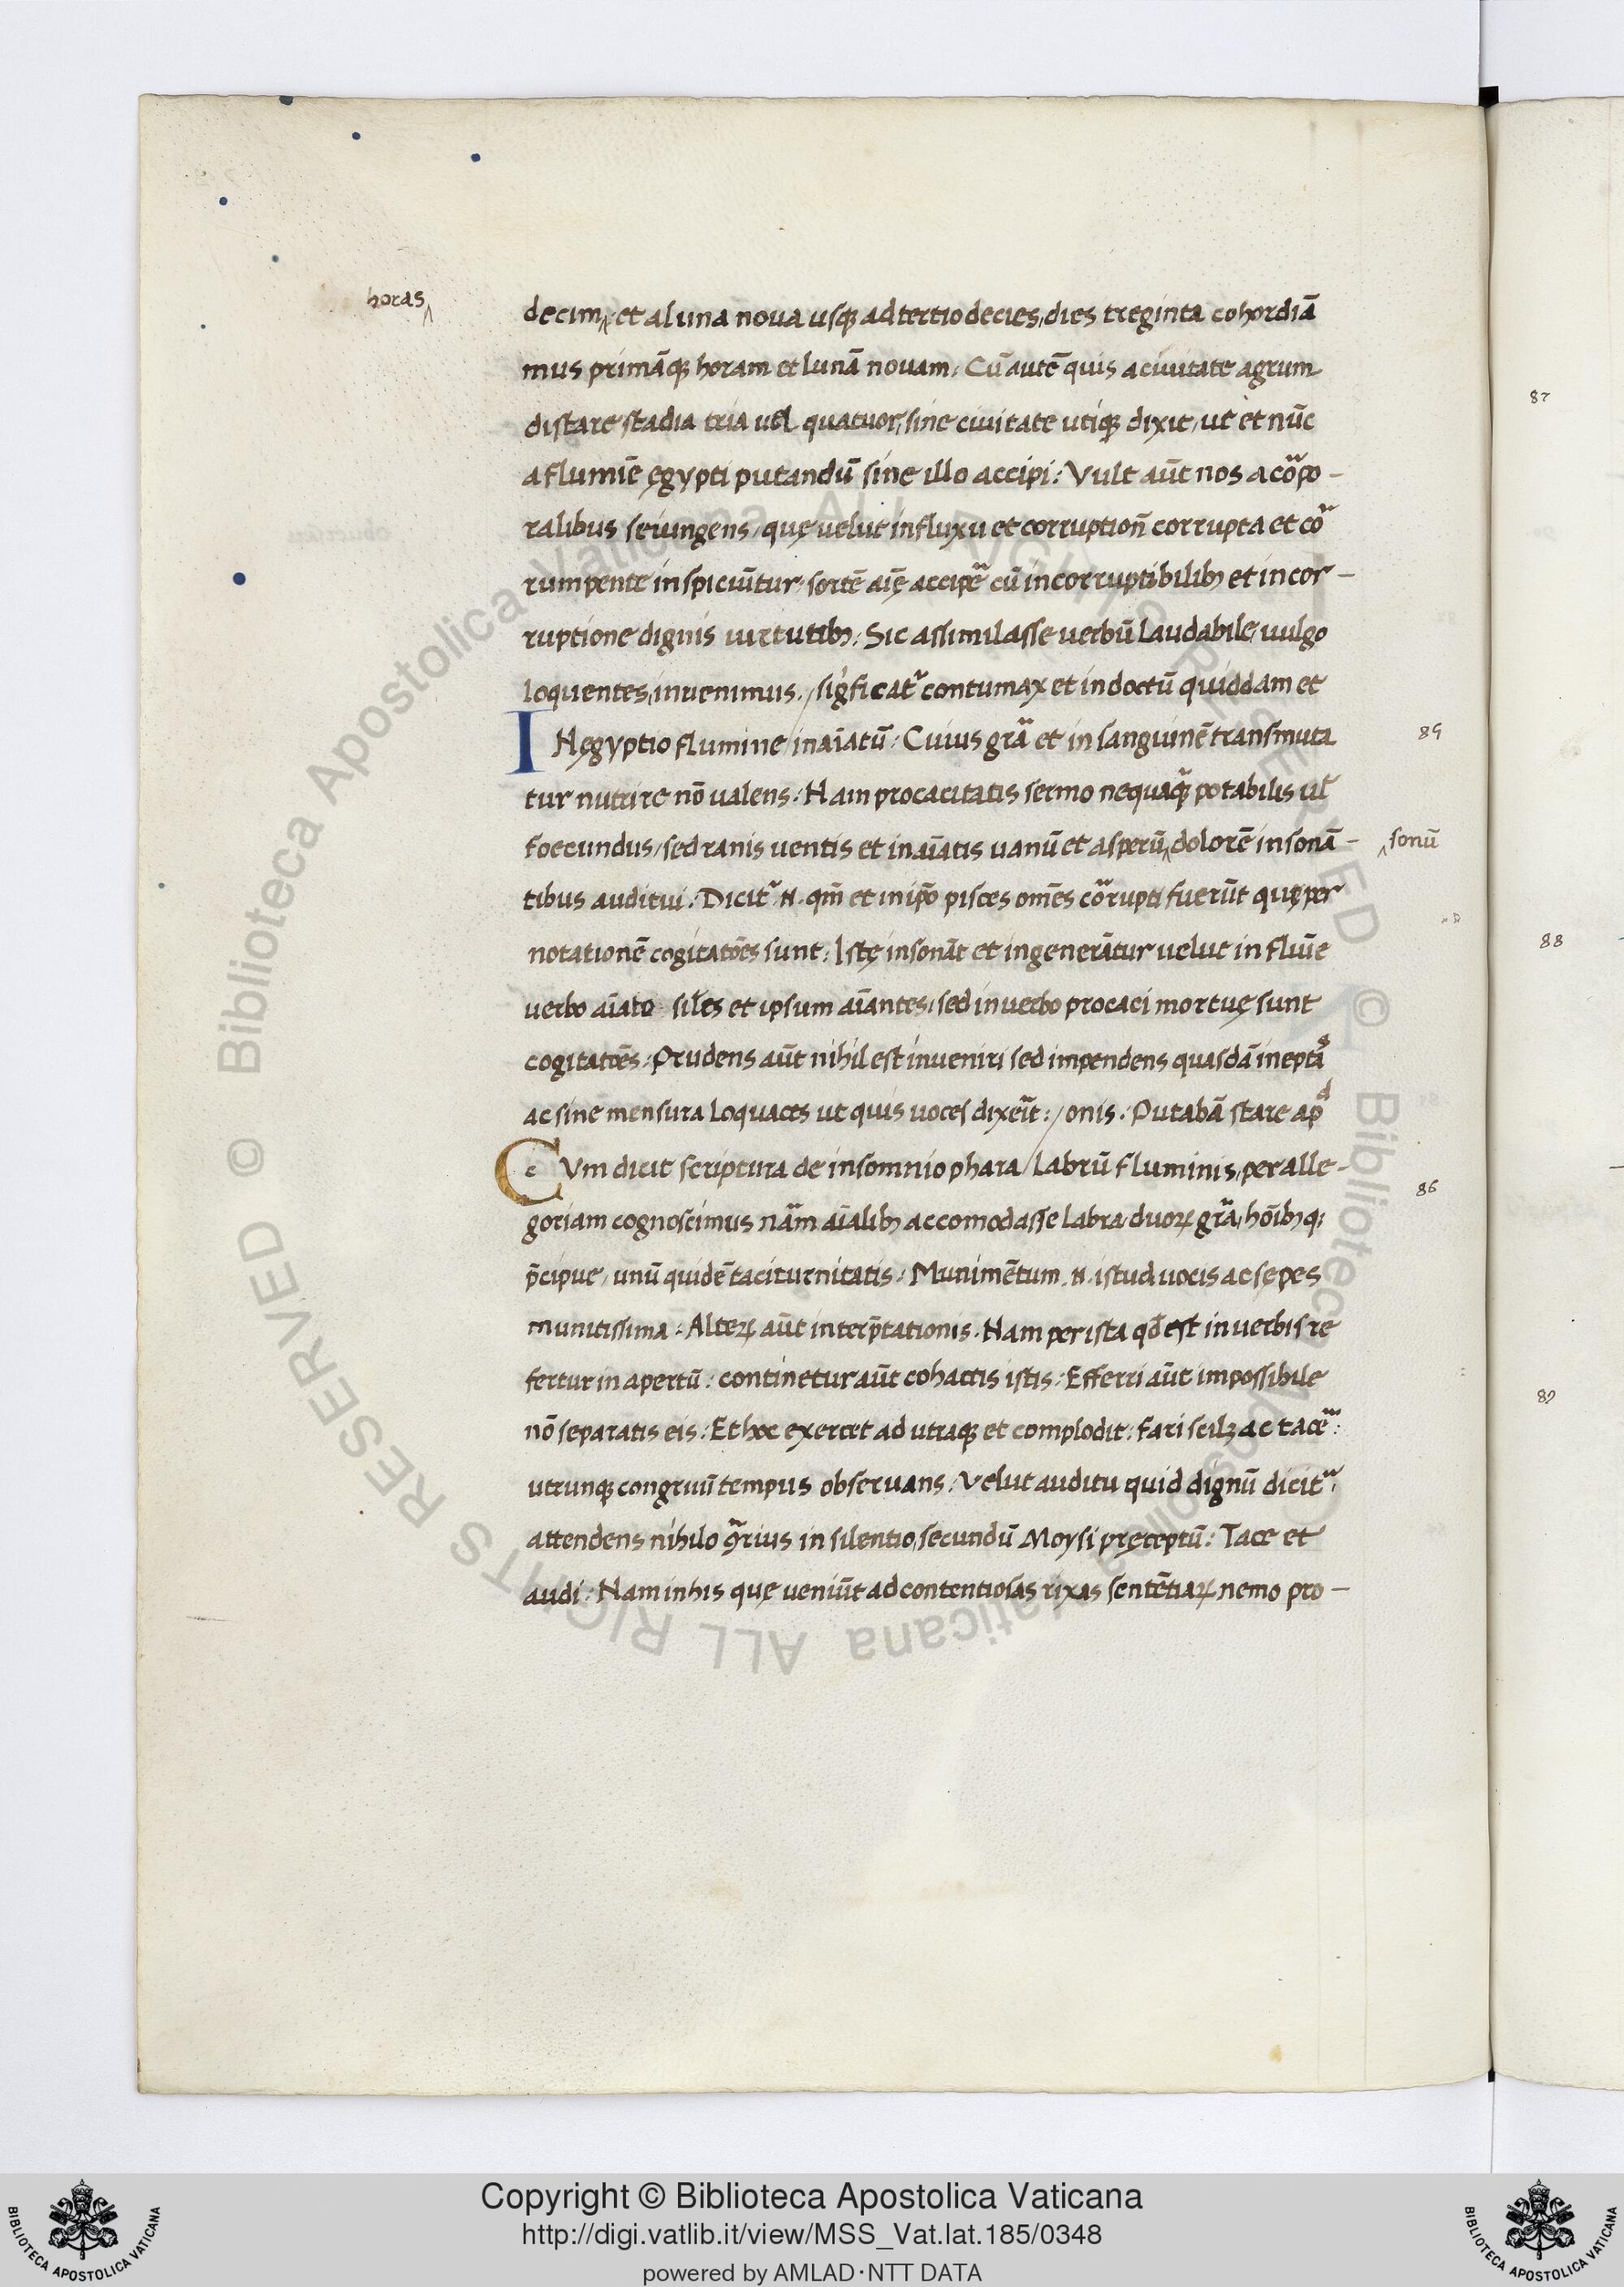 horas
decim et a luna noua usq; ad tertio decies, dies treginta cohordiā
mus primāq; horam et lunā nouam. Cū autē quis a ciuitate agrum
distare stadia tria uel quatuor, sine ciuitate utiq; dixit, ut et nūc
a flumīe ęgypti putandū sine illo accipi: Vult aūt nos a cor̄po-
ralibus seiungens, quę velut influxu et corruption̄ corrupta et cor̄
rumpente inspiciūtur, sortē aīę accipē cū incorruptibilib; et incor-
ruptione dignis uirtutib;: Sic assimilasse uerbū laudabile, uulgo
loquentes, inuenimus. / sig̃ficat̃ contumax et indoctū quiddam et
IN ęgyptio flumine / inaīatū: Cuius gr̄a et in sanguinē transmuta 85
tur nutrire nō ualens: Nam procacitatis sermo nequaq̃ potabilis ul̄
foecundus, sed ranis uentis et inaīatis uanū et asperū dolorē insonā- sonū
tibus auditui: Dicit̃ .N. qm̄ et in ip̄o pisces om̄es cor̄rupti fuerūt quę per
notationē cogitatōes sunt: Istę insonāt et ingenerātur velut in fluīe
uerbo aīato siłes et ipsum aīantes, sed in uerbo procaci mortuę sunt
cogitatōes: Prudens aūt nihil est inueniri sed impendens quasdā inepti
ac sine mensura loquaces ut quis uoces dixeīt: / onis. Putabā stare ap̄d
CVm dicit scriptura de insomnio phara / labrū fluminis, per alle-
goriam cognoscimus nām aīalib; accomodasse labra, duoꝝ gr̄a, hōib; q; 86
p̄cipue, unū quidē taciturnitatis: Munimētum .N. istud uocis ac sępes
munitissima: Alteꝝ aūt interp̄tationis. Nam per ista qđ est in uerbis re
fertur in apertū: continetur aūt cohactis istis: Efferri aūt impossibile
nō separatis eis: Et hoc exercet ad utraq; et complodit: fari scilꝫ ac tacē:
utrunq; congruū tempus obseruans: Velut auditu quid dignū dicit̃,
attendens nihilo 9̃rius in silentio, secundū Moysi pręceptū: Tace et
audi: Nam in his quę ueniūt ad contentiosas rixas sentētiaꝝ nemo pro-
87
88
89
Copyright © Biblioteca Apostolica Vaticana
http://digi.vatlib.it/view/MSS_Vat.lat.185/0348
powered by AMLAD·NTT DATA
BIBLIOTECA APOSTOLICA VATICANA
BIBLIOTECA APOSTOLICA VATICANA
© Biblioteca Apostolica Vaticana ALL RIGHTS RESERVED
© Biblioteca Apostolica Vaticana ALL RIGHTS RESERVED